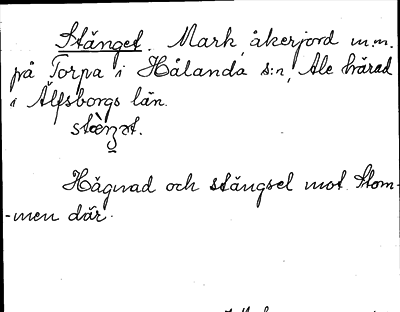 Stänget. Mark, åkerjord m.m.
på Torpa i Hålanda s:n, Ale härad
i Älfsborgs län.
Hägnad och stängsel mot Stom-
-men där.